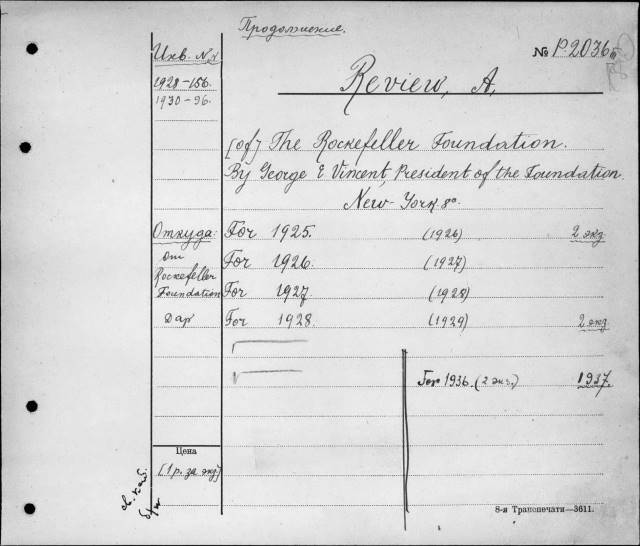 Продолжение.
Инв. №№
№ P.2036
1928-156.
1930-96.
Review, A,
[of] The Rockefeller Foundation.
By George E Vincent, President of the Foundation.
New-York. 8°.
Откуда: For 1925. (1926) 2 экз
от For 1926. (1927)
Rockefeller
Foundation For 1927. (1928)
Дар For 1928. (1929) 2 экз
For 1936. (2 экз.) 1937.
Цена
[1 р. за экз]
8-я Транспечати—3611.